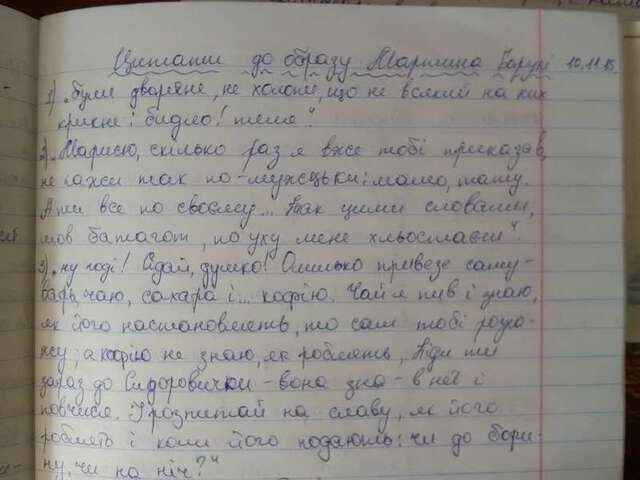 Цитати до образу Мартина Борулі 10.11.15.
1) „Були дворяне, не холопи, що не всякий на них
крикне: бидло! теля".
2. „Марисю, скілько раз я вже тобі приказав,
не кажи так по-мужецьки: мамо, тату.
А ти все по своєму... Так цими словами,
мов батагом, по уху мене хльостаєш".
3) „Ну годі! Сідай, душко! Омелько привезе само-
варь, чаю, сахарю і... кофію. Чай я пив і знаю,
як його настановляють, то сам тобі розка-
жу; а кофію не знаю, як роблять, Піди ти
зараз до Сидоровички – вона зна – в неї і
повчися. І розпитай на славу, як його
роблять і коли його подають: чи до борщ-
у, чи на ніч?"